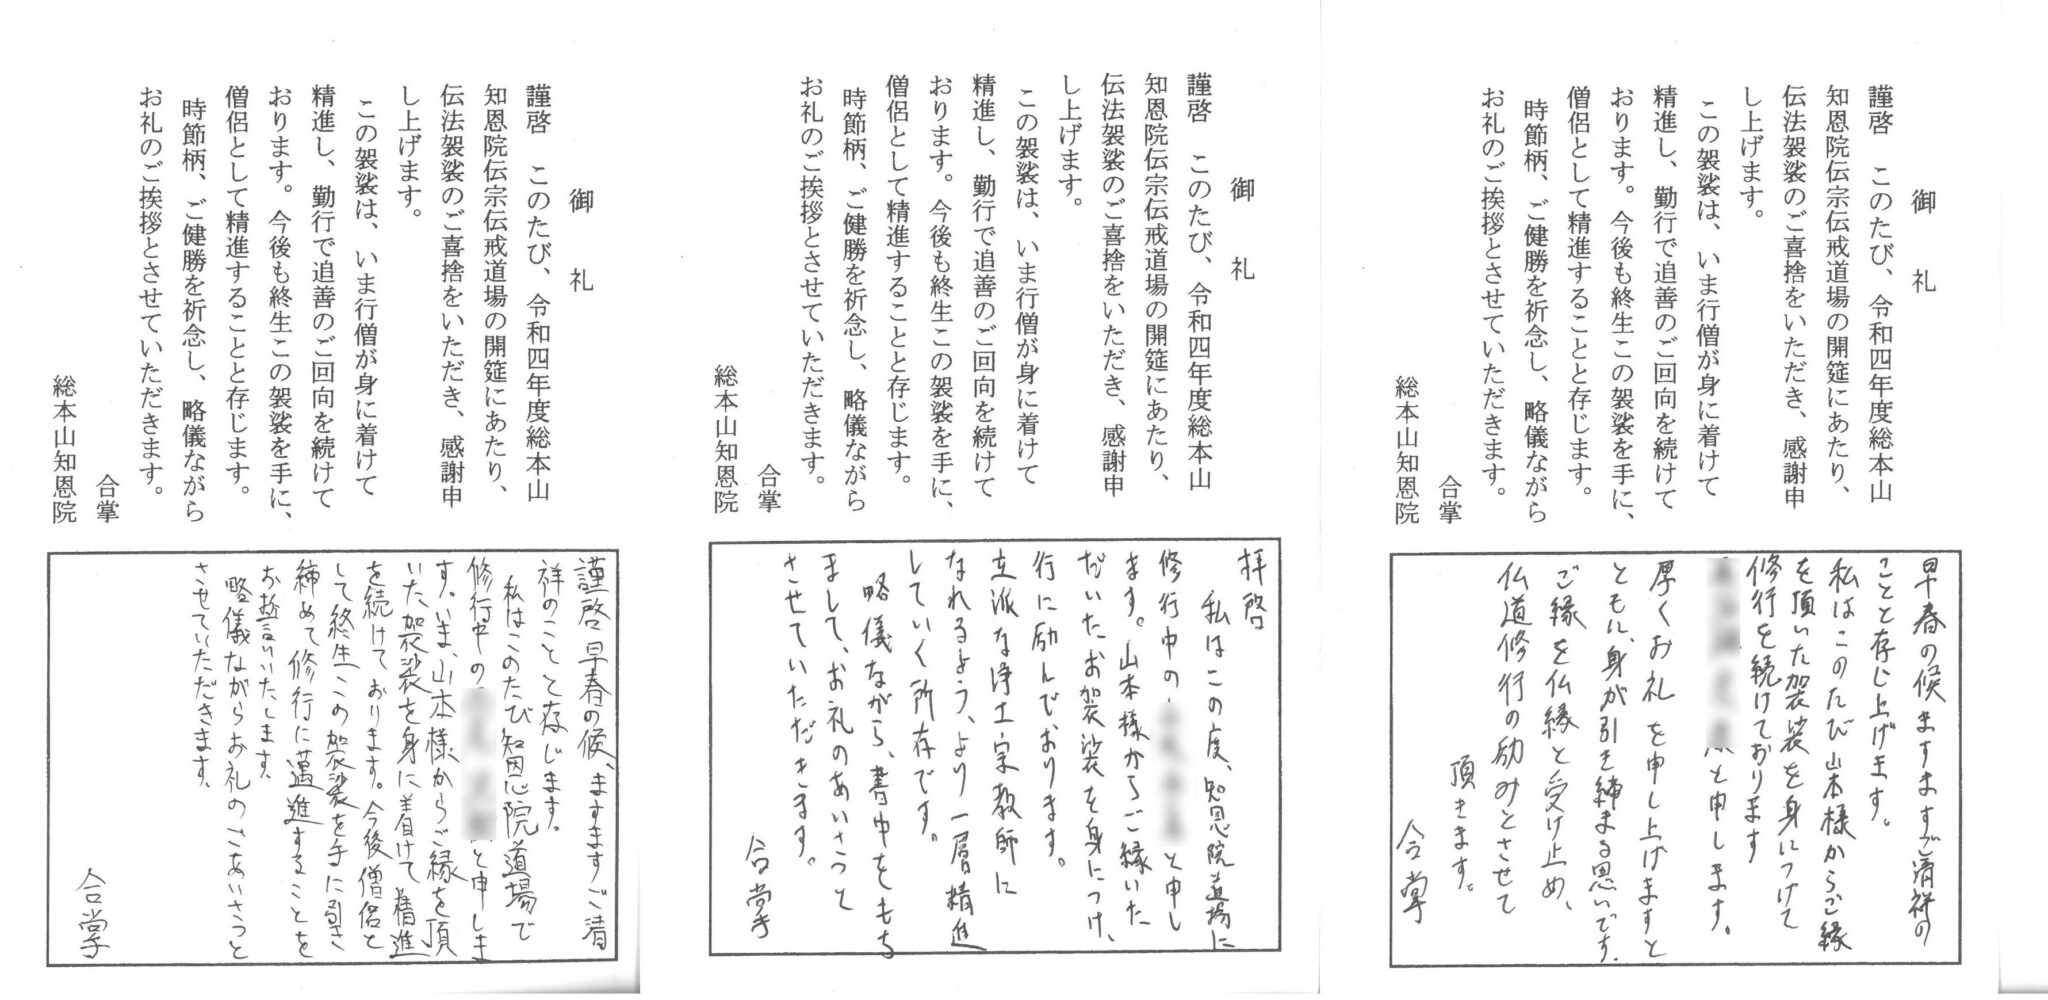 御　礼
謹啓　このたび、令和四年度総本山
知恩院伝宗伝戒道場の開筵にあたり、
伝法袈裟のご喜捨をいただき、感謝申
し上げます。
この袈裟は、いま行僧が身に着けて
精進し、勤行で追善のご回向を続けて
おります。今後も終生この袈裟を手に、
僧侶として精進することと存じます。
時節柄、ご健勝を祈念し、略儀ながら
お礼のご挨拶とさせていただきます。
合掌
総本山知恩院
謹啓 早春の候、ますますご清
祥のことと存じます。
私はこのたび知恩院道場で
修行中の と申しま
す。いま、山本様からご縁を頂
いた袈裟を身に着けて精進
を続けております。今後僧侶と
して終生この袈裟を手に引き
締めて修行に邁進することを
お誓いいたします。
略儀ながらお礼のごあいさつと
させていただきます。
合掌
御　礼
謹啓　このたび、令和四年度総本山
知恩院伝宗伝戒道場の開筵にあたり、
伝法袈裟のご喜捨をいただき、感謝申
し上げます。
この袈裟は、いま行僧が身に着けて
精進し、勤行で追善のご回向を続けて
おります。今後も終生この袈裟を手に、
僧侶として精進することと存じます。
時節柄、ご健勝を祈念し、略儀ながら
お礼のご挨拶とさせていただきます。
合掌
総本山知恩院
拝啓
私はこの度、知恩院道場に
修行中の と申し
ます。山本様からご縁いた
だいたお袈裟を身につけ、
行に励んでおります。
立派な浄土宗教師に
なれるよう、より一層精進
していく所存です。
略儀ながら、書中をもち
まして、お礼のあいさつと
させていただきます。
合掌
御　礼
謹啓　このたび、令和四年度総本山
知恩院伝宗伝戒道場の開筵にあたり、
伝法袈裟のご喜捨をいただき、感謝申
し上げます。
この袈裟は、いま行僧が身に着けて
精進し、勤行で追善のご回向を続けて
おります。今後も終生この袈裟を手に、
僧侶として精進することと存じます。
時節柄、ご健勝を祈念し、略儀ながら
お礼のご挨拶とさせていただきます。
合掌
総本山知恩院
早春の候ますますご清祥の
ことと存じ上げます。
私はこのたび山本様からご縁
を頂いた袈裟を身につけて
修行を続けております
と申します。
厚くお礼を申し上げますと
ともに、身が引き締まる思いです。
ご縁を仏縁と受け止め、
仏道修行の励みとさせて
頂きます。
合掌